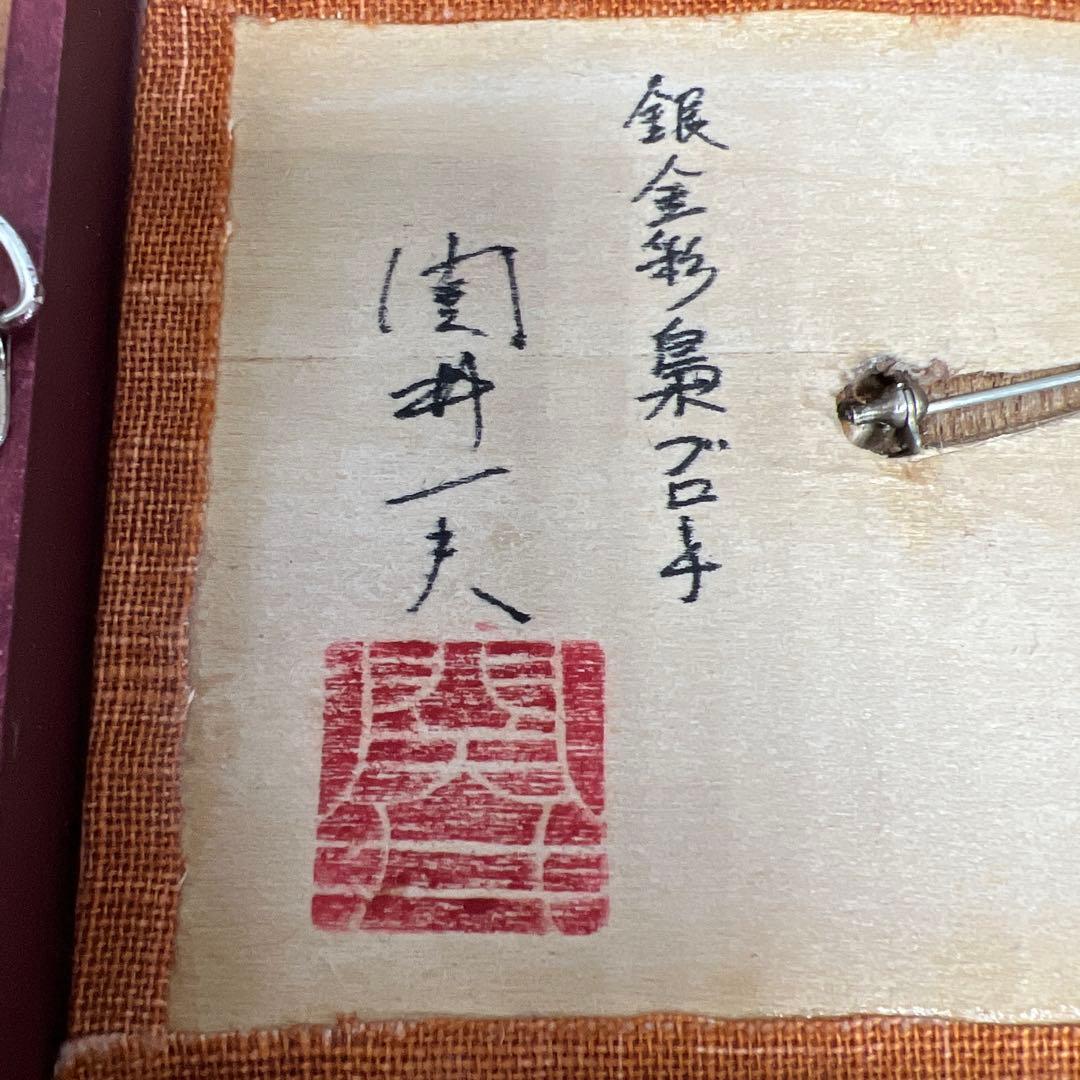 銀金彩梟ブローチ
関井一夫